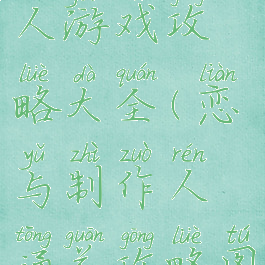 人游戏攻
lüè dà quán liàn
略大全(恋
yǔ zhì zuò rén
与制作人
tōng guān gōng lüè tú
通关攻略图